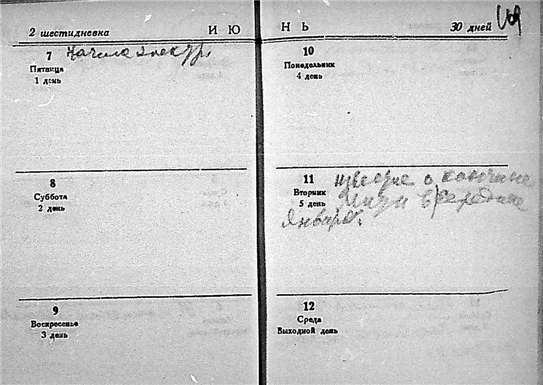 2 шестидневка
И Ю
7
Начала электр.
Пятница
1 день
8
Суббота
2 день
9
Воскресенье
3 день
Н Ь
30 дней
10
Понедельник
4 день
11
известие о кончине
Вторник
в середине
5 день
января.
12
Среда
Выходной день